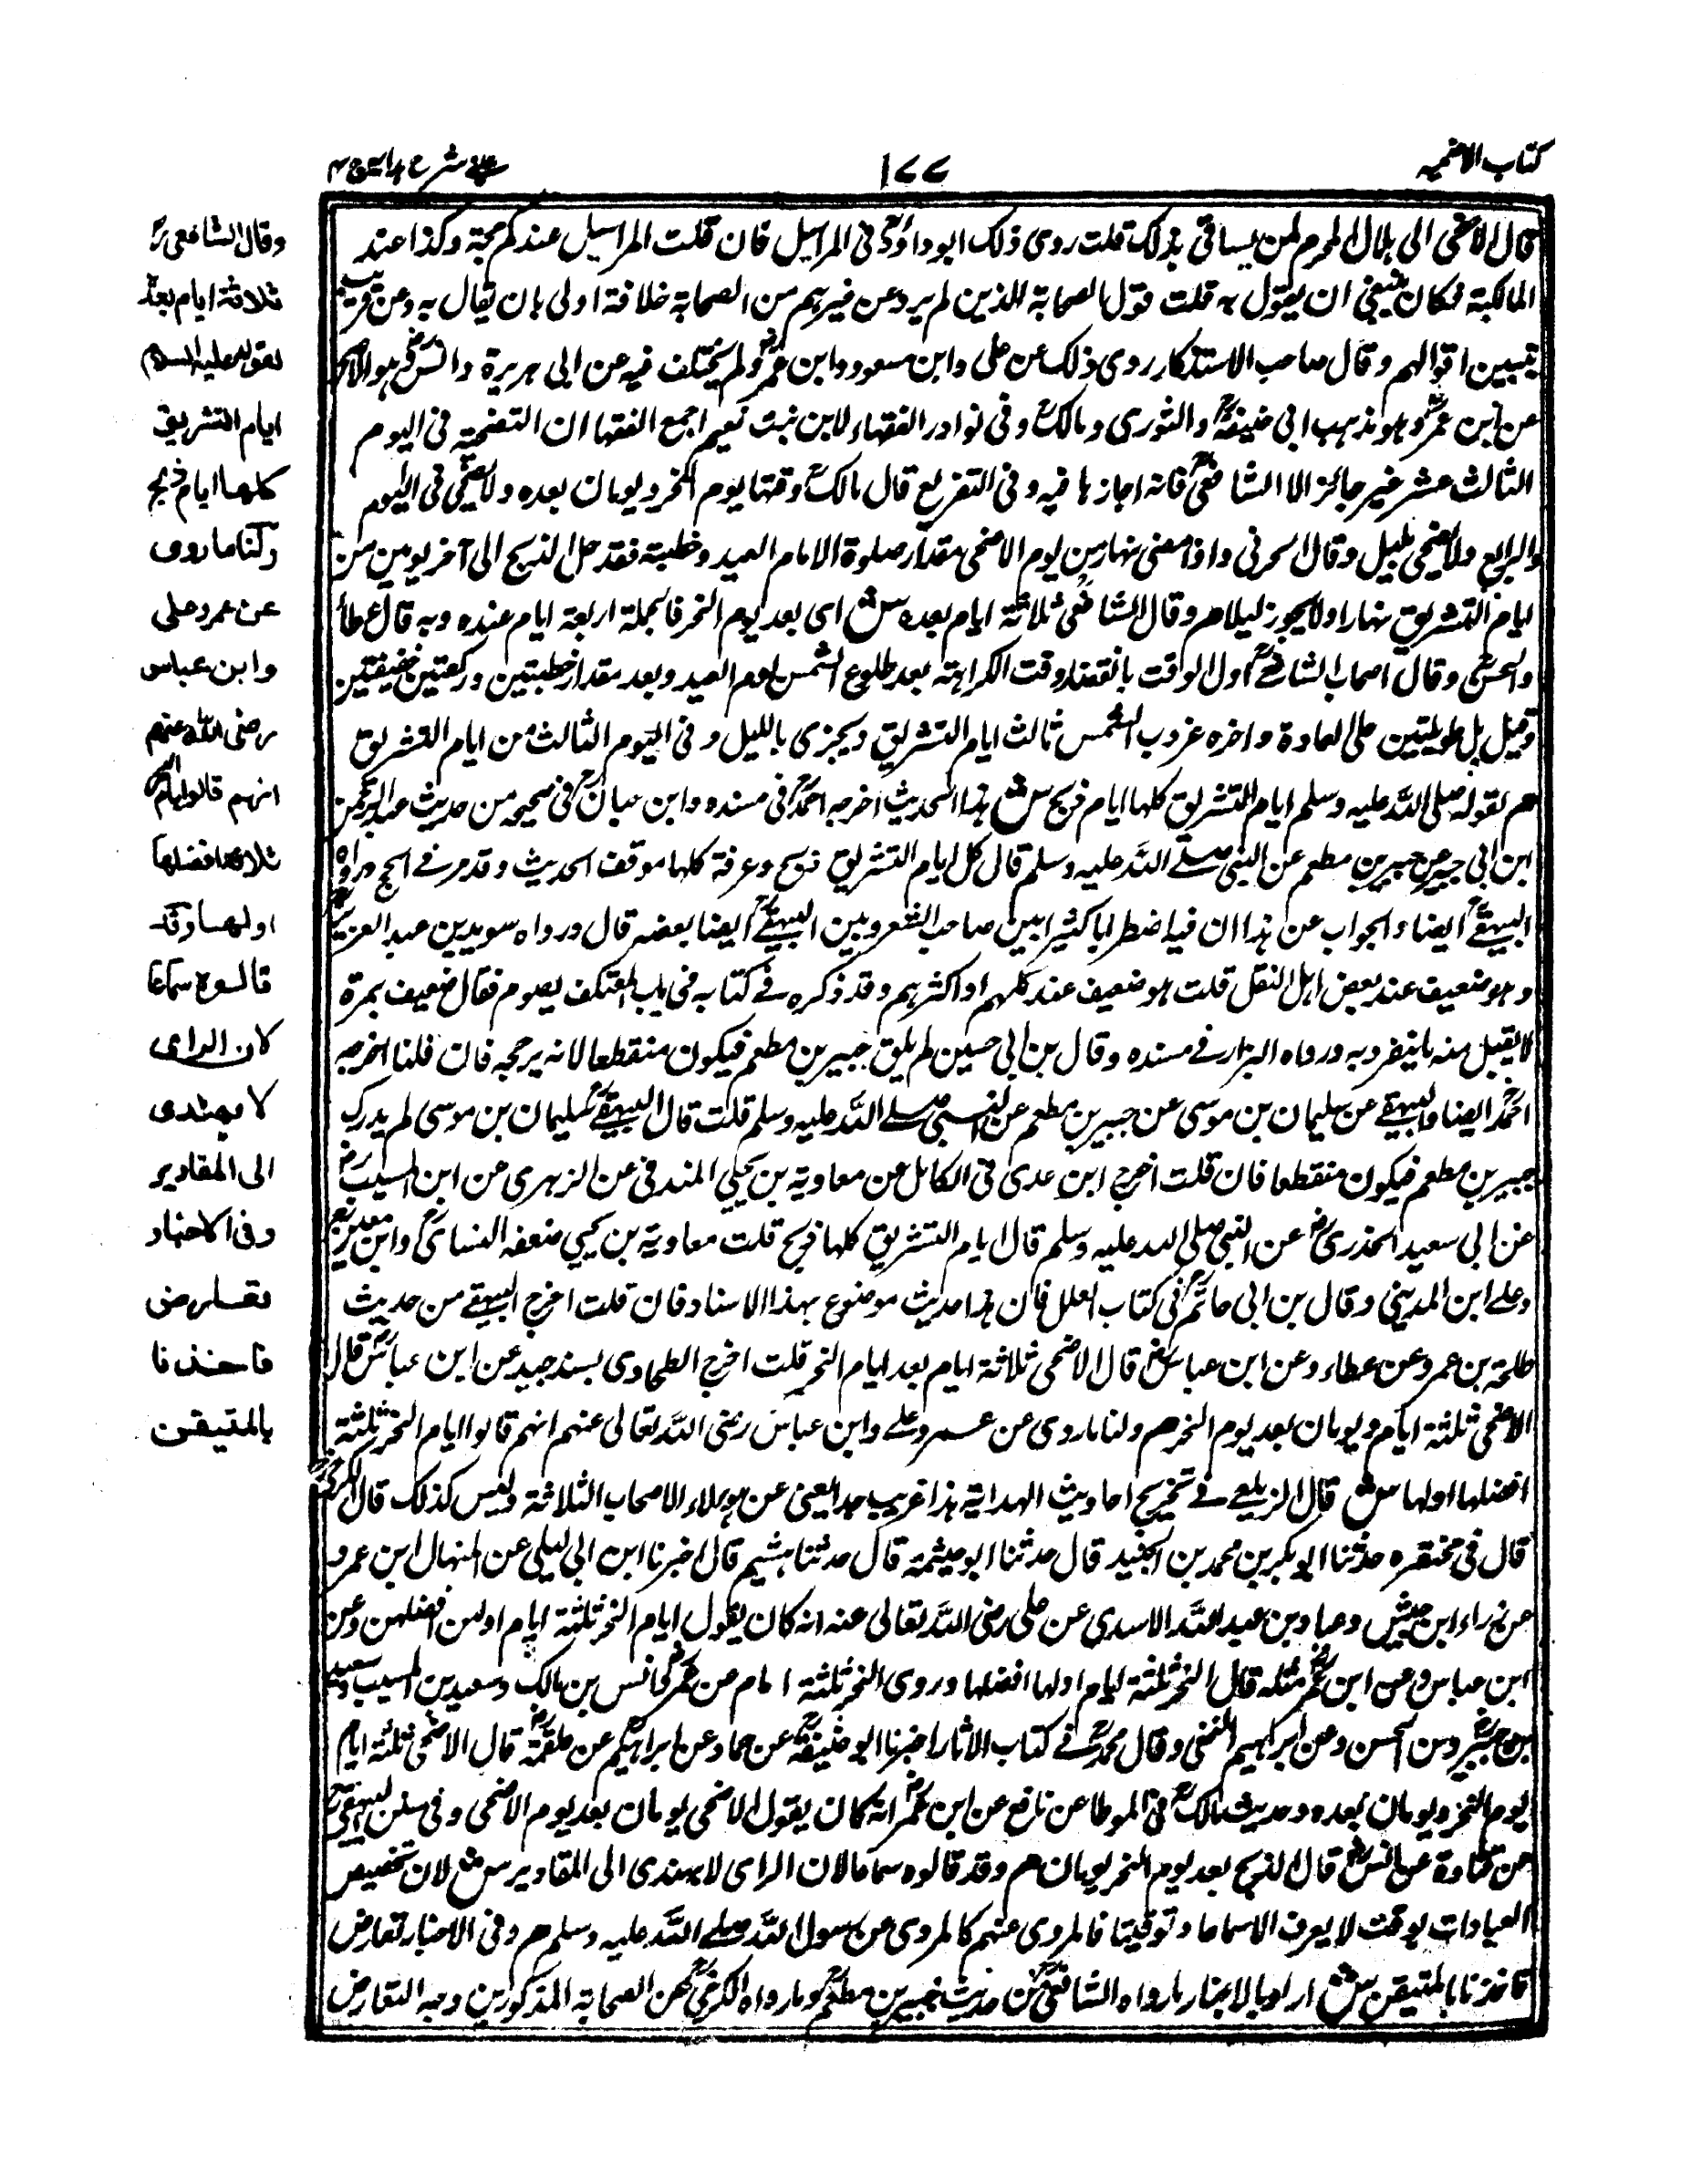 كتاب الاضحية
١٧٧
عينى شرح هداية ج ٤
قال الاضحى الى هلال المحرم لمن يساقى بذلك قلت روى ذلك ابو داود فى المراسيل فان قلت المراسيل عندكم حجة وكذا عند
المالكية فكان ينبغى ان يقول به قلت قول الصحابة الذين لم يرد عن غيرهم من الصحابة خلافه اولى بان يقال به وعن قريب
تتبين اقوالهم وقال صاحب الاستذكار روى ذلك عن على وابن مسعود وابن عمر ولم يختلف فيه عن ابى هريرة وانس وهو الاصح
عن ابن عمر وهو مذهب ابى حنيفة والثورى ومالك وفى نوادر الفقهاء لابن بنت نعيم اجمع الفقها ان التضحية فى اليوم
الثالث عشر غير جائز الا الشافعى فانه اجازها فيه وفى التفريع قال مالك وقتها يوم النحر ويومان بعده ولا يضحى فى اليوم
الرابع ولا يضحى بليل وقال الخرقى واذا مضى نهار من يوم الاضحى مقدار صلوة الامام العيد وخطبته فقد حل الذبح الى آخر يومين من
ايام التشريق نهارا ولا يجوز ليلا م وقال الشافعى ثلاثة ايام بعده ش اى بعد يوم النحر فالجملة اربعة ايام عنده وبه قال عطاء
والحسن وقال اصحاب الشافعى اول الوقت بانقضاء وقت الكراهة بعد طلوع الشمس يوم العيد وبعد مقدار خطبتين وركعتين خفيفتين
وقيل بل طويلتين على العادة واخره غروب الشمس ثالث ايام التشريق ويجزى بالليل وفى اليوم الثالث من ايام التشريق
م لقوله صلى الله عليه وسلم ايام التشريق كلها ايام ذبح ش هذا الحديث اخرجه احمد فى مسنده وابن حبان فى صحيحه من حديث عبد الرحمن
ابن ابى حسين عن جبير بن مطعم عن النبى صلى الله عليه وسلم قال كل ايام التشريق ذبح وعرفة كلها موقف الحديث وقد مر فى الحج ورواه
البيهقى ايضا والجواب عن هذا ان فيه اضطرابا كثيرا بين صاحب التنقيح وبين البيهقى ايضا بعضه قال ورواه سويد بن عبد العزيز
وهو ضعيف عند بعض اهل النقل قلت هو ضعيف عند كلهم او اكثرهم وقد ذكره فى كتابه فى باب المعتكف يصوم فقال ضعيف بمرة
لا يقبل منه ما ينفرد به ورواه البزار فى مسنده وقال بن ابى حسين لم يلق جبير بن مطعم فيكون منقطعا فان قلنا اخرجه
احمد ايضا والبيهقى عن سليمان بن موسى عن جبير بن مطعم عن النبى صلى الله عليه وسلم قلت قال البيهقى سليمان بن موسى لم يدرك
جبير بن مطعم فيكون منقطعا فان قلت اخرج ابن عدى فى الكامل عن معاوية بن يحيى الصدفى عن الزهرى عن ابن المسيب
عن ابى سعيد الخدرى عن النبى صلى الله عليه وسلم قال ايام التشريق كلها ذبح قلت معاوية بن يحيى ضعفه النسائى وابن معين
وعلى ابن المدينى وقال بن ابى حاتم فى كتاب العلل فان هذا حديث موضوع بهذا الاسناد فان قلت اخرج البيهقى من حديث
طلحة بن عمرو عن عطاء وعن ابن عباس قال الاضحى ثلاثة ايام بعد ايام النحر قلت اخرج الطحاوى بسند جيد عن ابن عباس قال
الاضحى ثلثة ايام ويومان بعد يوم النحر م ولنا ما روى عن عمر وعلى وابن عباس رضى الله تعالى عنهم انهم قالوا ايام النحر ثلثة
افضلها اولها ش قال الزيلعى فى تخريج احاديث الهداية هذا غريب جدا يعنى عن هولاء الاصحاب الثلاثة وليس كذلك قال الكرخى
قال فى مختصره حدثنا ابو بكر بن محمد بن الجنيد قال حدثنا ابو خيثمة قال حدثنا هشيم قال اخبرنا ابن ابى ليلى عن المنهال ابن عمرو
عن زر ابن حبيش وعباد بن عبد الله الاسدى عن على رضى الله تعالى عنه انه كان يقول ايام النحر ثلثة ايام اولهن افضلهن وعن
ابن عباس وعن ابن عمر مثله قال النحر ثلثة ايام اولها افضلها وروى النحر ثلثة ايام عن عمر وانس بن مالك وسعيد بن المسيب وسعيد
بن جبير وعن الحسن وعن ابراهيم النخعى وقال محمد فى كتاب الاثار اخبرنا ابو حنيفة عن حماد عن ابراهيم عن علقمة قال الاضحى ثلثة ايام
يوم النحر ويومان بعده وحديث مالك فى الموطا عن نافع عن ابن عمر انه كان يقول الاضحى يومان بعد يوم الاضحى وفى سنن البيهقى
عن قتادة عن انس قال الذبح بعد يوم النحر يومان م وقد قالوه سماعا لان الراى لا يهتدى الى المقادير ش لان تخصيص
العبادات بوقت لا يعرف الا سماعا وتوقيتا فالمروى عنهم كالمروى عن رسول الله صلى الله عليه وسلم م وفى الاخبار تعارض
فاخذنا بالمتيقن ش اراد بالاخبار ما رواه الشافعى من حديث جبير بن مطعم وما رواه الكرخى عن الصحابة المذكورين وجه التعارض
وقال الشافعى
ثلاثة ايام بعده
لقوله عليه السلام
ايام التشريق
كلها ايام ذبح
ولنا ما روى
عن عمر وعلى
وابن عباس
رضى الله عنهم
انهم قالوا ايام النحر
ثلاثة افضلها
اولها وقد
قالوه سماعا
لان الراى
لا يهتدى
الى المقادير
وفى الاخبار
تعارض
فاخذنا
بالمتيقن